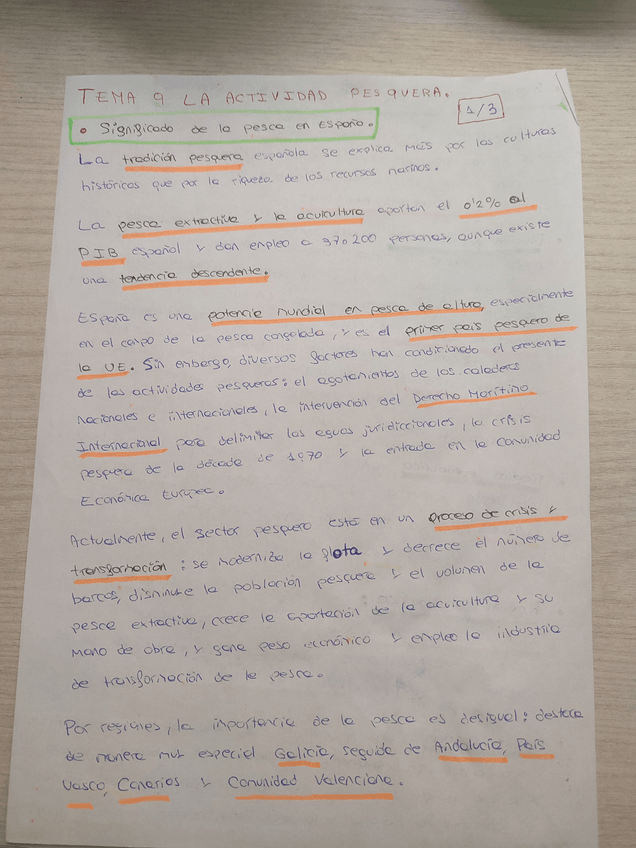 TEMA 9 LA ACTIVIDAD PESQUERA.
1/3
• Significado de la pesca en España.
La tradición pesquera española se explica más por las culturas
históricas que por la riqueza de los recursos marinos.
La pesca extractiva y la acuicultura aportan el 0'2% al
PIB español y dan empleo a 370200 personas, aunque existe
una tendencia descendente.
España es una potencia mundial en pesca de altura, especialmente
en el campo de la pesca congelada, y es el primer país pesquero de
la UE. Sin embargo, diversos factores han condicionado el presente
de las actividades pesqueras: el agotamientos de los caladeros
nacionales e internacionales, la intervención del Derecho Marítimo
Internacional para delimitar las aguas juridiccionales, la crisis
pesquera de la década de 1970 y la entrada en la Comunidad
Económica Europea.
Actualmente, el sector pesquero está en un proceso de crisis y
transformación: se moderniza la flota y decrece el número de
barcos, disminuye la población pesquera y el volumen de la
pesca extractiva, crece la aportación de la acuicultura y su
mano de obra, y gana peso económico y empleo la industria
de transformación de la pesca.
Por regiones, la importancia de la pesca es desigual: destaca
de manera muy especial Galicia, seguida de Andalucía, País
Vasco, Canarias y Comunidad Valenciana.